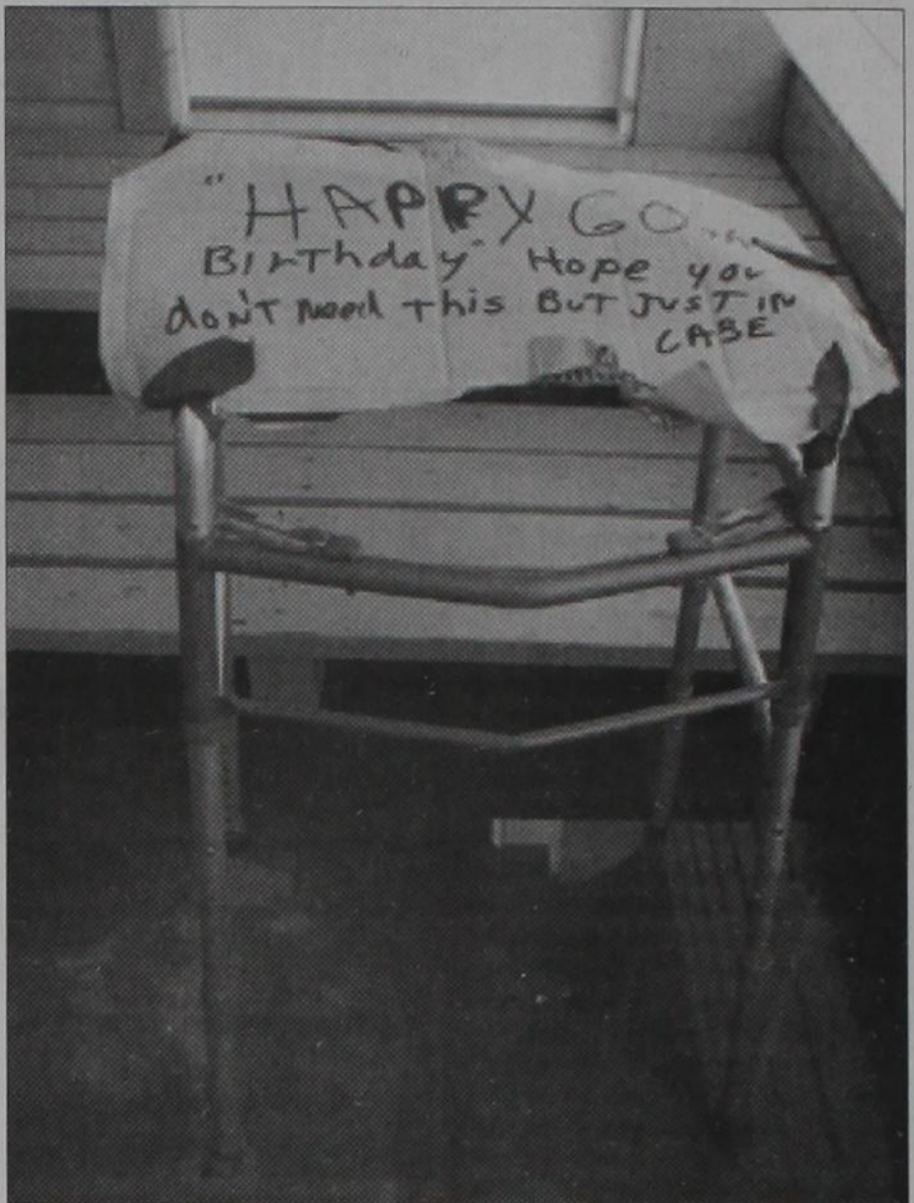 "HAPPY 60
Birthday" Hope you
don't need this But JUST IN
CASE